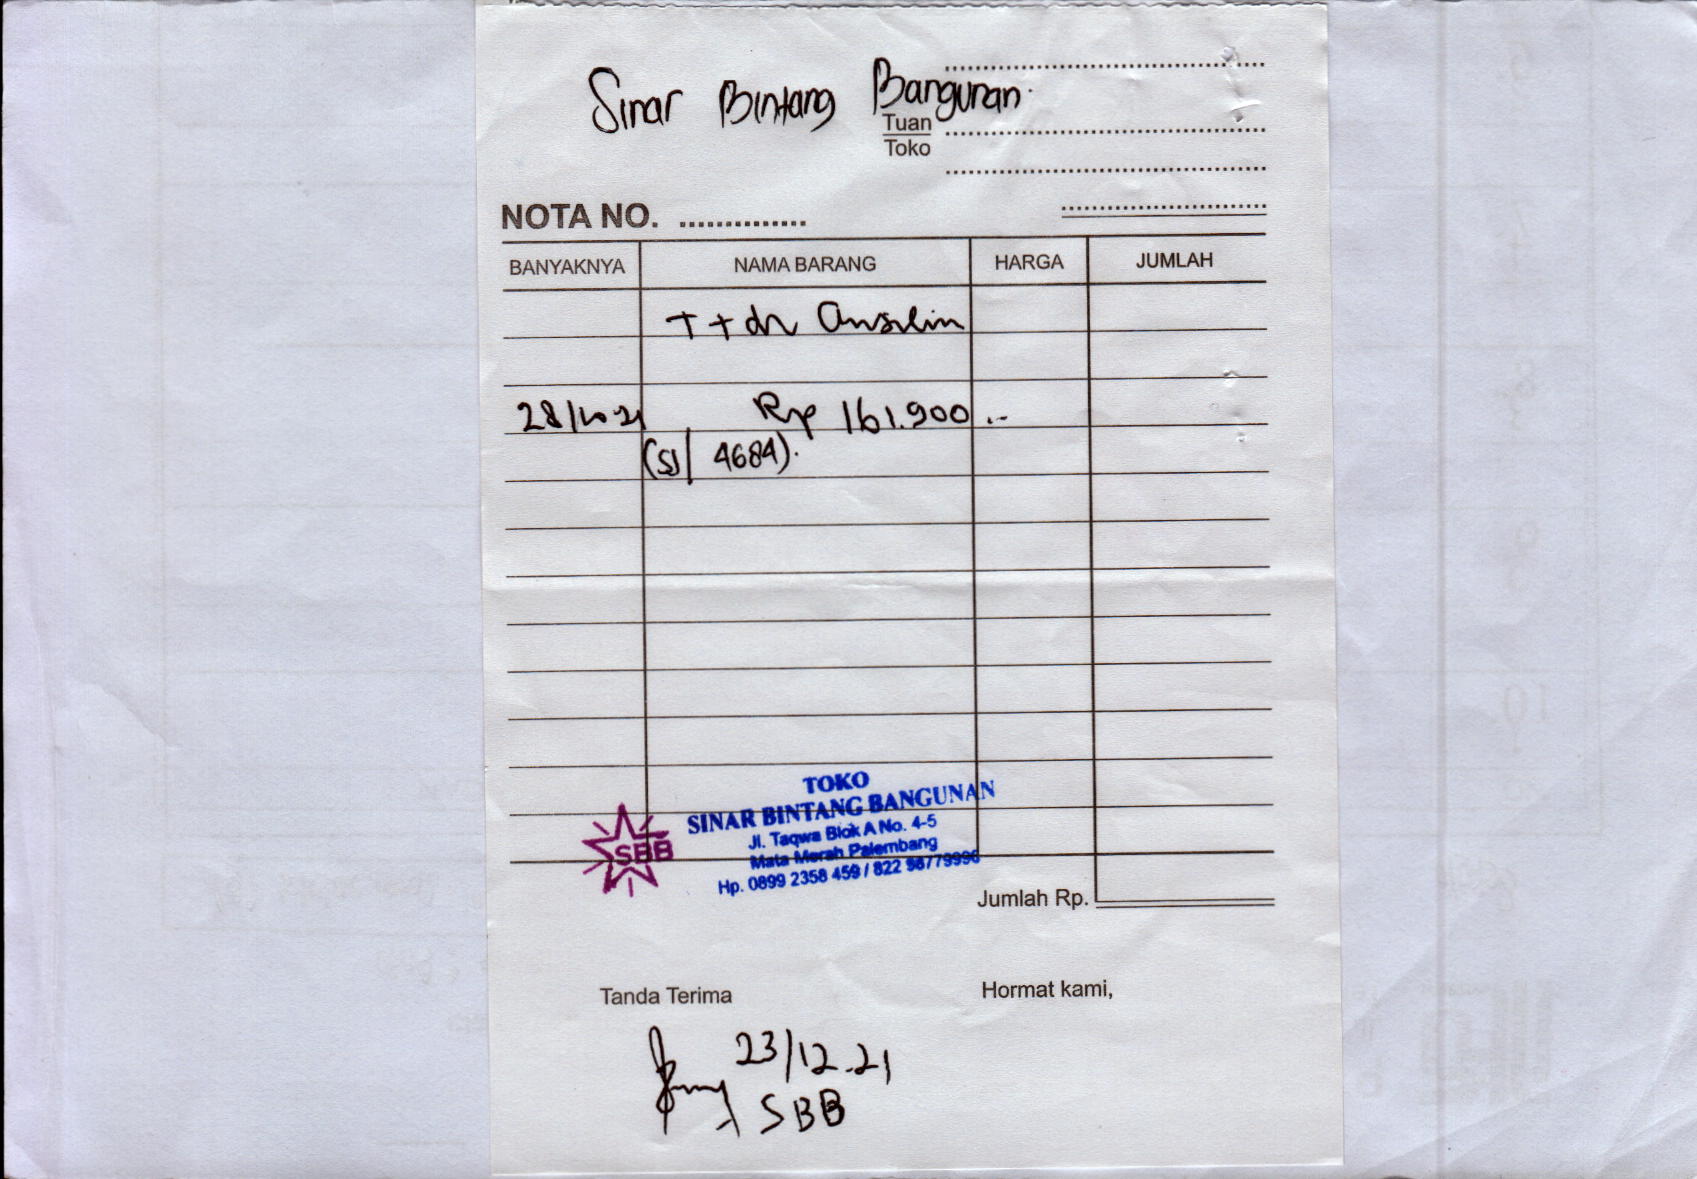 Sinar Bintang Bangunan
Tuan
Toko
NOTA NO. ..............
BANYAKNYA NAMA BARANG HARGA JUMLAH
T + dr
28/10 21 Rp 161.900 .-
(SJ/ 4684).
TOKO
SINAR BINTANG BANGUNAN
Jl. Taqwa Blok A No. 4-5
Mata Merah Palembang
SBB
Hp. 0899 2358 459 / 822
Jumlah Rp.
Tanda Terima Hormat kami,
23/12.21
SBB